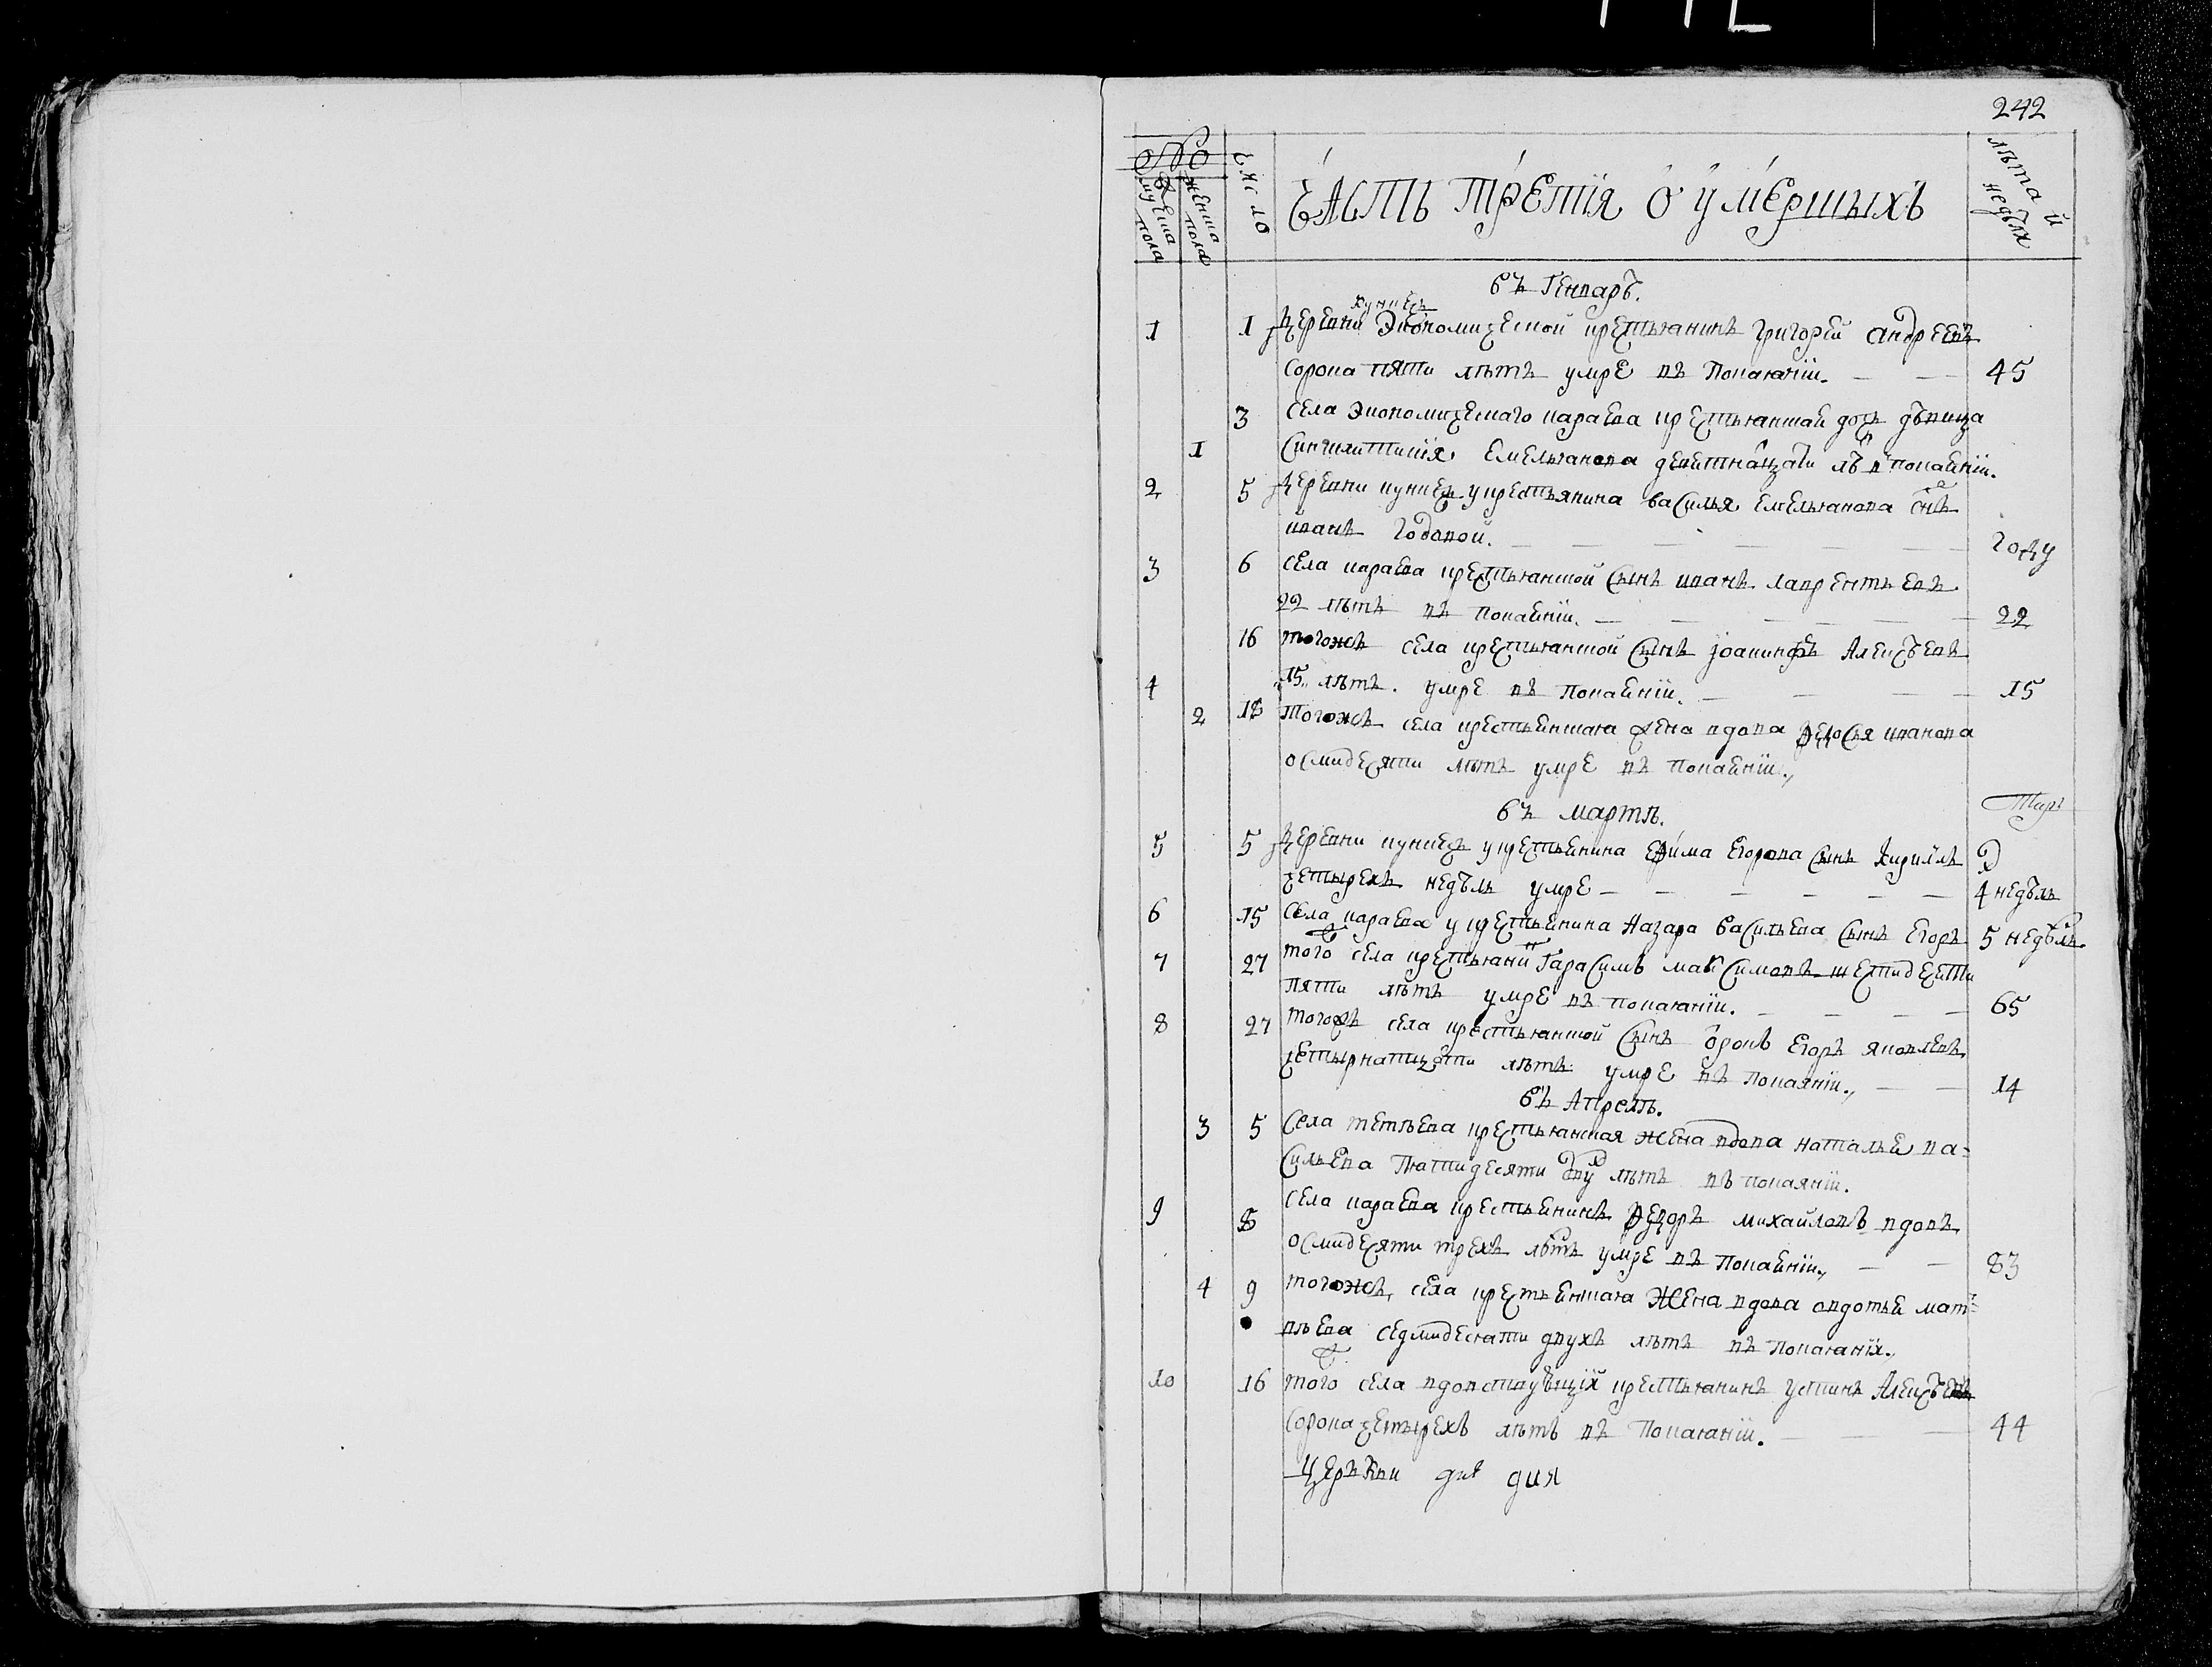 242
№
мужеска пола
женска пола
число
лѣта и недѣли
Часть третія о умершыхъ
въ Генварѣ.
кункет
1 1 деревни Экономической крестьянинъ григорей андреевъ
сорока пяти лѣтъ умре въ покаяніи. 45
3 села экономическаго караева крестьянской дочь дѣвица
1 Емельянова девятнатцати лѣ в покаяніи.
2 5 деревни у крестьянина василья емельянова снъ
иванъ годовой. году
3 6 села караева крестьянской сынъ иванъ лаврентьевъ
22 лѣтъ въ покаяніи. 22
16 тогожъ села крестьянской сынъ Алексѣевъ
4 15 лѣтъ. умре въ покаяніи. 15
2 18 тогожъ села крестьянская жена вдова ѳедосья иванова
осмидесяти лѣтъ умре въ покаяніи.
въ мартѣ.
5 5 деревни у крестьянина ефима егорова сынъ кирилъ
четырехъ недѣль умре 4 недѣль
6 15 села караева у крестьянина назара васильева сынъ егоръ 5 недѣль
7 27 того села крестьянин гарасимъ максимовъ шестидесяти
пяти лѣтъ умре въ покаяніи. 65
8 27 тогожъ села крестьянской сынъ егоръ яковлевъ
четырнатцети лѣтъ умре въ покаяніи. 14
въ Апрелѣ.
3 5 села тетѣева крестьянская жена вдова наталья ва=
сильева пятидесяти дву лѣтъ въ покаяніи.
9 8 села караева крестьянинъ ѳедоръ михайловъ вдовъ
осмидесяти трехъ лѣтъ умре въ покаяніи. 83
4 9 тогожъ села крестьянская жена вдова авдотья мат=
вѣева седмидесяти двухъ лѣтъ въ покаяніи.
10 16 того села вдовствующій крестьянинъ устинъ Алексѣевъ
сорока четырехъ лѣтъ въ покаяніи. 44
церькви